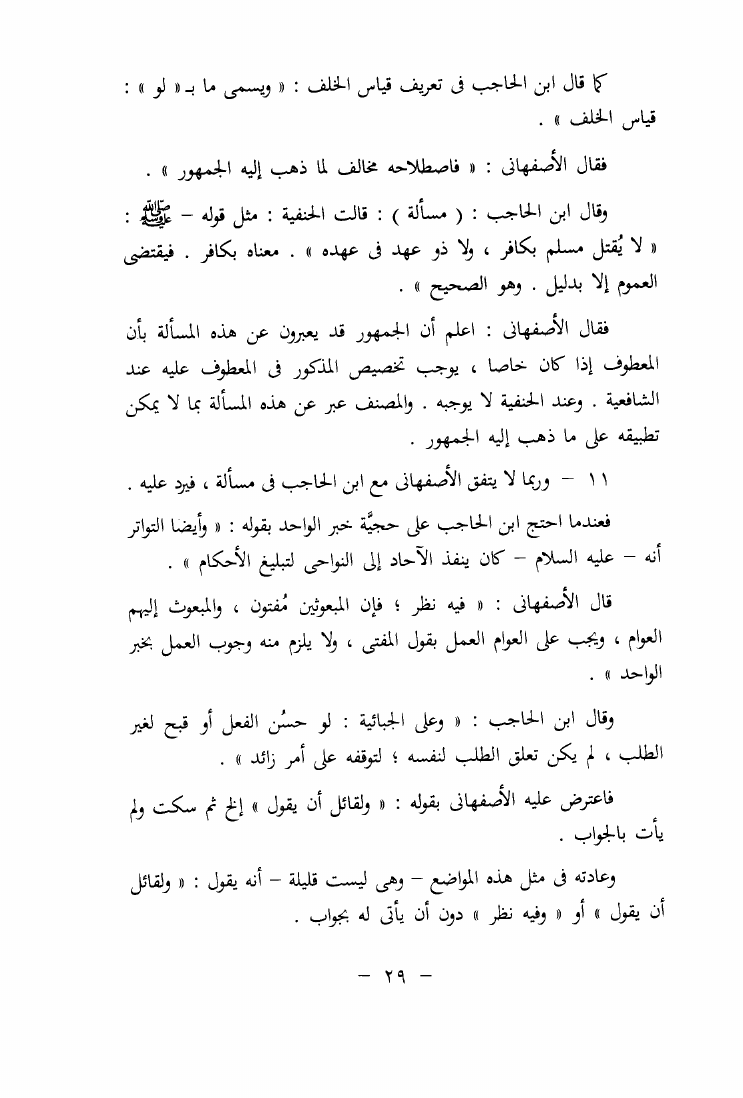 كما قال ابن الحاجب فى تعريف قياس الخلف : « ويسمى ما بـ « لو » :
قياس الخلف » .
فقال الأصفهانى : « فاصطلاحه مخالف لما ذهب إليه الجمهور » .
وقال ابن الحاجب : ( مسألة ) : قالت الحنفية : مثل قوله – ﷺ :
« لا يُقتل مسلم بكافر ، ولا ذو عهد فى عهده » . معناه بكافر . فيقتضى
العموم إلا بدليل . وهو الصحيح » .
فقال الأصفهانى : اعلم أن الجمهور قد يعبرون عن هذه المسألة بأن
المعطوف إذا كان خاصا ، يوجب تخصيص المذكور فى المعطوف عليه عند
الشافعية . وعند الحنفية لا يوجبه . والمصنف عبر عن هذه المسألة بما لا يمكن
تطبيقه على ما ذهب إليه الجمهور .
١١ – وربما لا يتفق الأصفهانى مع ابن الحاجب فى مسألة ، فيرد عليه .
فعندما احتج ابن الحاجب على حجيَّة خبر الواحد بقوله : « وأيضا التواتر
أنه – عليه السلام – كان ينفذ الآحاد إلى النواحى لتبليغ الأحكام » .
قال الأصفهانى : « فيه نظر ؛ فإن المبعوثين مُفتون ، والمبعوث إليهم
العوام ، ويجب على العوام العمل بقول المفتى ، ولا يلزم منه وجوب العمل بخبر
الواحد » .
وقال ابن الحاجب : « وعلى الجبائية : لو حسُن الفعل أو قبح لغير
الطلب ، لم يكن تعلق الطلب لنفسه ؛ لتوقفه على أمر زائد » .
فاعترض عليه الأصفهانى بقوله : « ولقائل أن يقول » إلخ ثم سكت ولم
يأت بالجواب .
وعادته فى مثل هذه المواضع – وهى ليست قليلة – أنه يقول : « ولقائل
أن يقول » أو « وفيه نظر » دون أن يأتى له بجواب .
– ٢٩ –